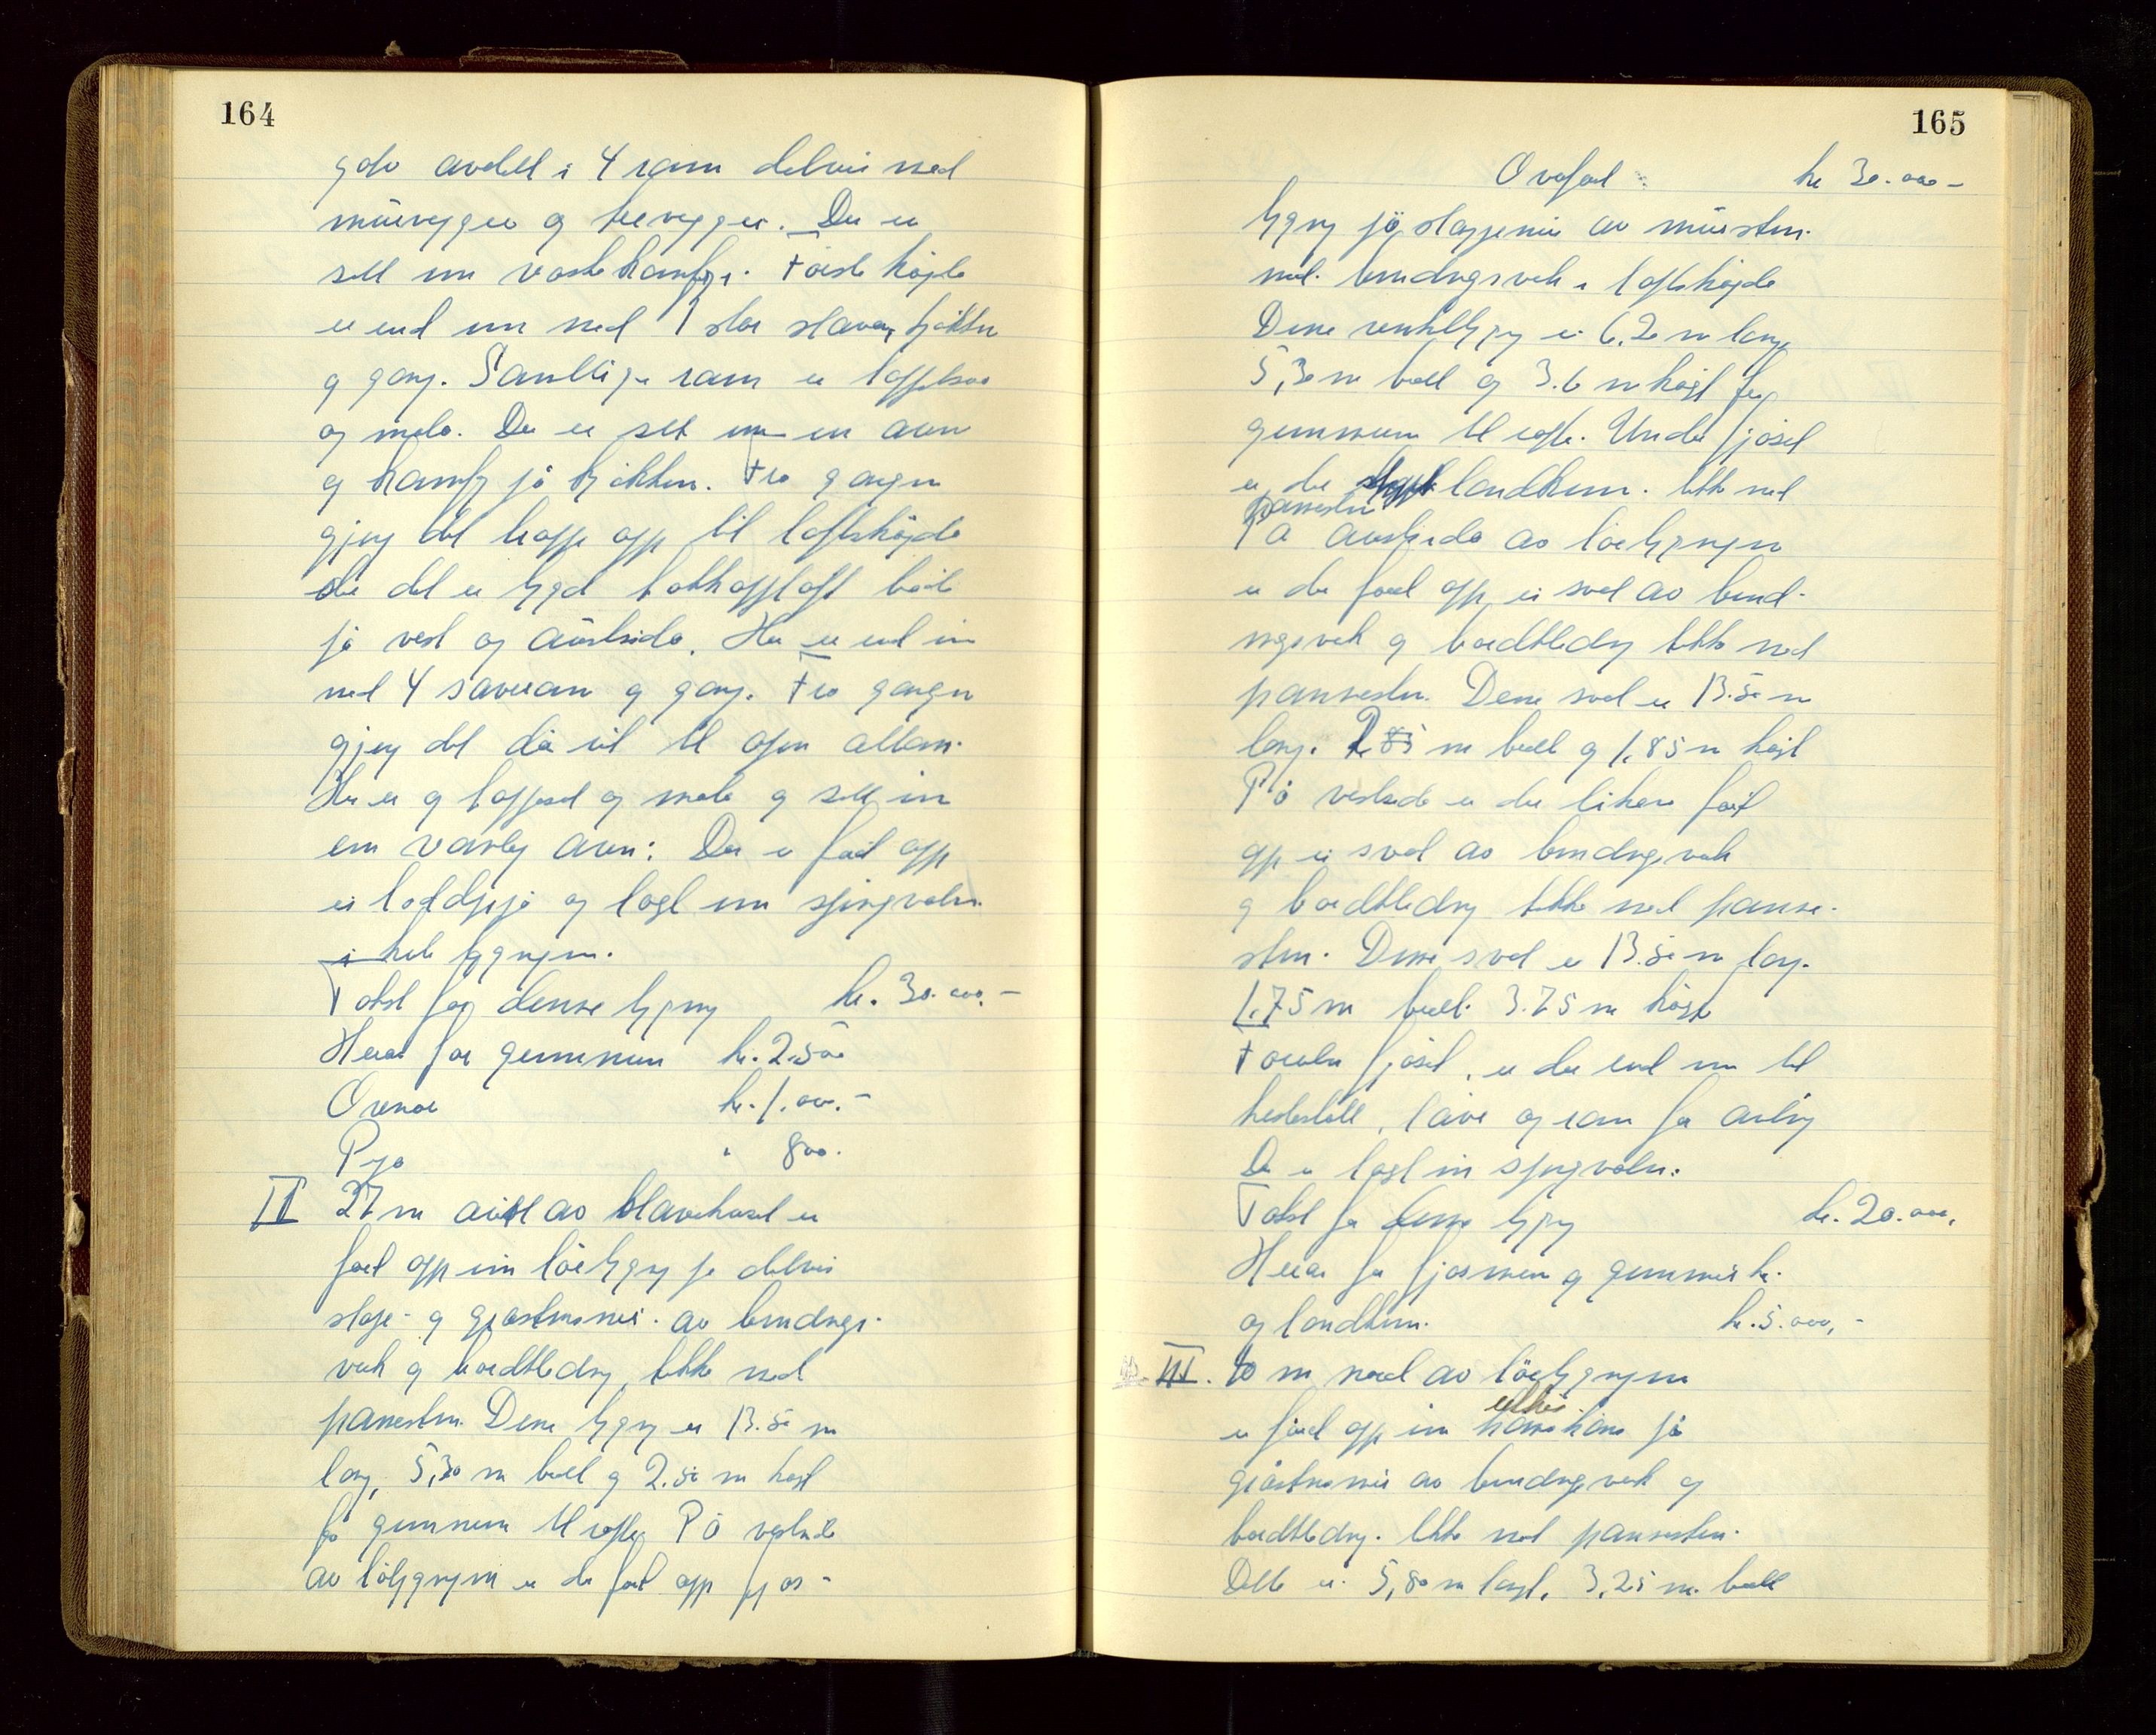 164
golv avdelt i 4 rom delvis med
mürvegger og trevegger. Der er
sett inn vaskekamfyr. Förste högde
er innd inn med 1 stor stova, kjökken
og gang. Samtlige rom er
og mala. Der er sett inn en avn
og kamfyr på kjökken. Fra gangen
gjeng det trapp opp til loftshögda
der det er bygd takkopploft både
på vest og austsida. Her er innd inn
med 4 soverom og gang. Fra gangen
gjeng det då ut til open altan.
Her er og og mala og sett inn
ein vanleg avn. Der er ført opp
ei loddpipe og lagt inn springvatn
i hele bygningen.
Takst for denne bygning kr. 30.000.-
Herav for grunnmur kr. 2.500
Ovnar kr. 1.000.-
Pipa " 800.
II 27 m aust av stovehuset er
ført opp ein löebygning på delvis
støype- og gråsteinsmur. av bindings-
verk og bordkledning, tekke med
pannestein. Denne bygning er 13.50 m
lang, 5,30 m breitt og 2.50 m högt
frå grunnmur til raft. På vestsida
av löebygningen er der ført opp fjøs-
165
Overført kr 30.000-
bygning på støypemur av mürstein
med bindingsverk i loftshögda
Denne vinkelbygning er 6,20 m lang
5,30 m breitt og 3.6 m högt frå
grunnmur til raft. Under fjøset
er der landkum. tekke med
pannestein
På austsida av löebygningen
er der ført opp ei sval av bind-
ingsverk og bordkledning tekke med
pannestein. Denne sval er 13.50 m
lang. 2.85 m breitt og 1,85 m högt
På vestsida er der likeins ført
opp ei sval av bindingsverk
og bordkledning tekke med panne-
stein. Denne sval er 13.50 m lang.
1.75 m breitt 3.75 m högt
Foruten fjøset, er der innd inn til
hestestall, låve og rom for avling
Der er lagt inn springvatn.
Takst for denne bygning kr. 20.000,
Herav for fjøsmur og grunnmur kr.
og landkum. kr. 5.000,-
III. 10 m nord av löebygningen
er ført opp ein på
gråsteinsmur av bindingsverk og
bordkledning. tekke med pannestein.
Dette er 5,80 m langt, 3,25 m. breitt